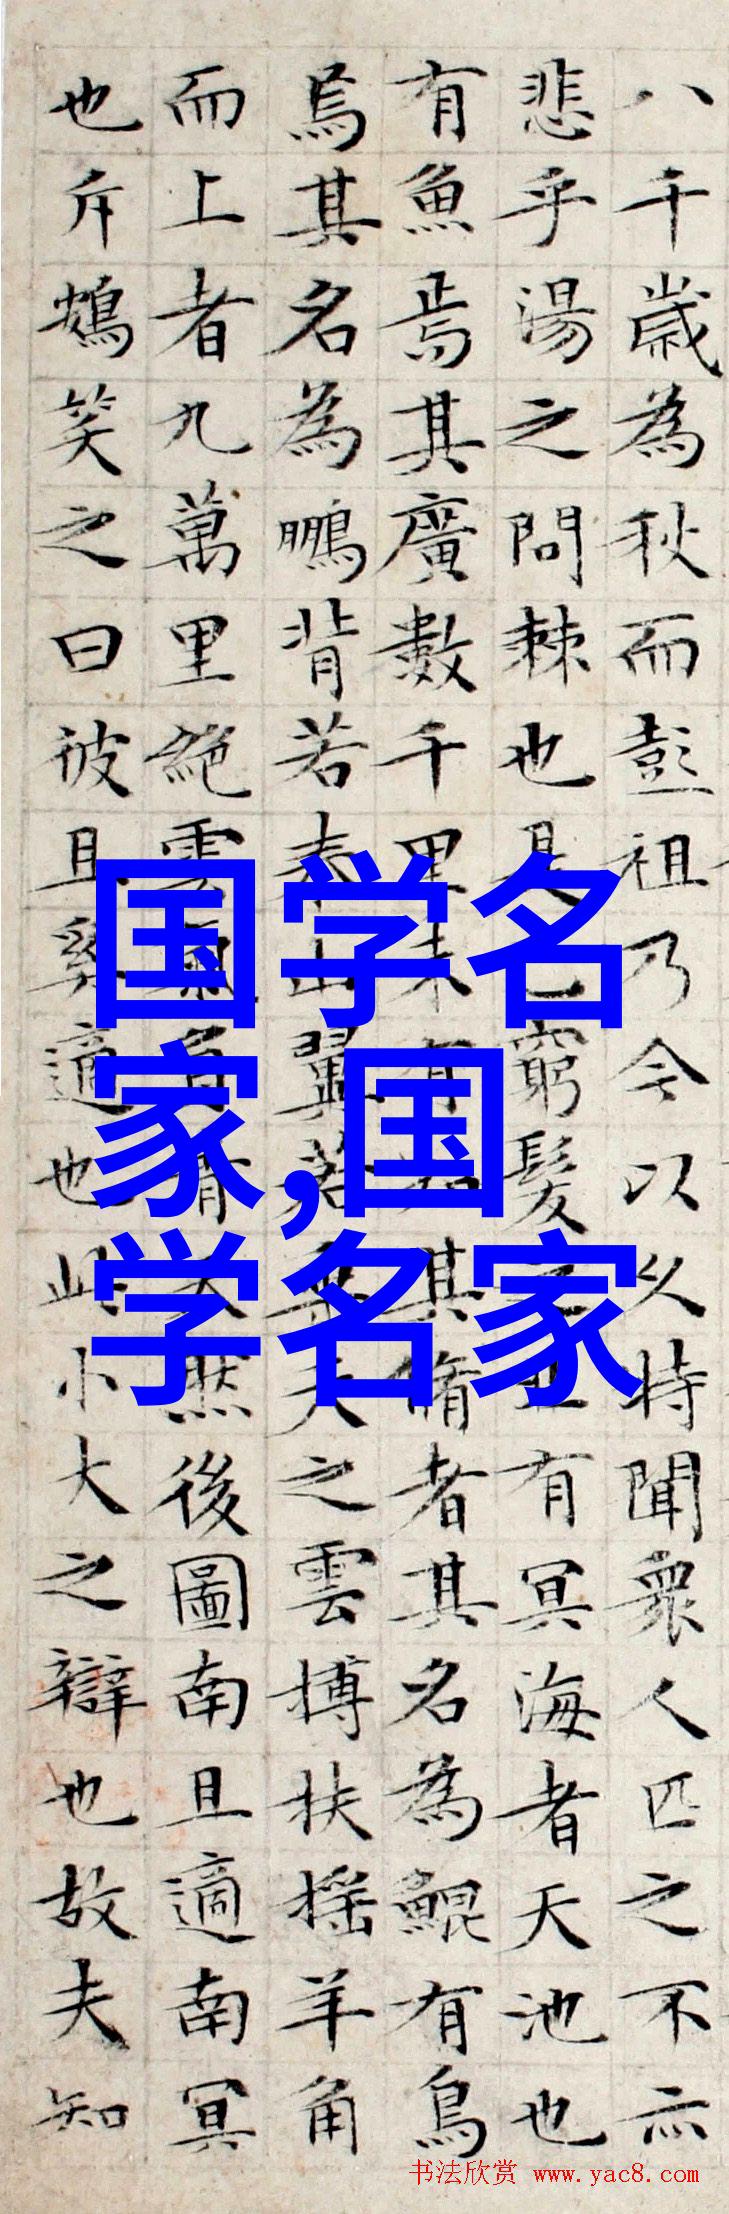 八千歲為秋而彭祖乃今以久特聞衆人匹之不亦
悲乎湯之問棘也是已窮髮之北有冥海者天池也
有魚焉其廣數千里未有知其脩者其名為鯤有鳥
焉其名為鵬背若泰山翼若垂天之雲摶扶搖羊角
而上者九萬里絕雲氣負青天然後圖南且適南冥
也斥鴳笑之曰彼且奚適也此小大之辯也故夫知
国学名
家,国
学名家
书法欣赏 www.yac8.com